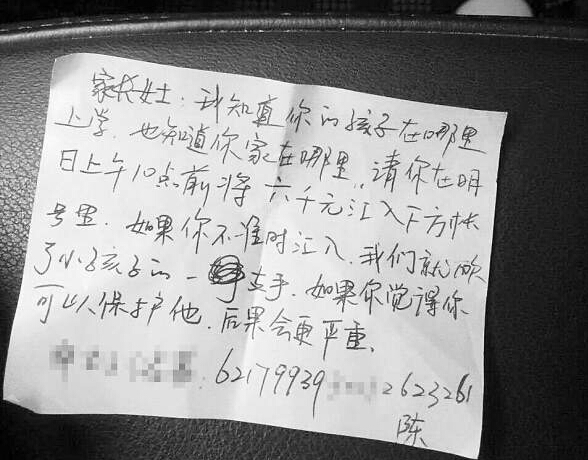 家长女士：我知道你的孩子在哪里
上学，也知道你家在哪里，请你在明
日上午10点前将六千元汇入下方帐
号里，如果你不准时汇入，我们就砍
了小孩子的一支手，如果你觉得你
可以保护他，后果会更严重、
62179939 2623261
陈